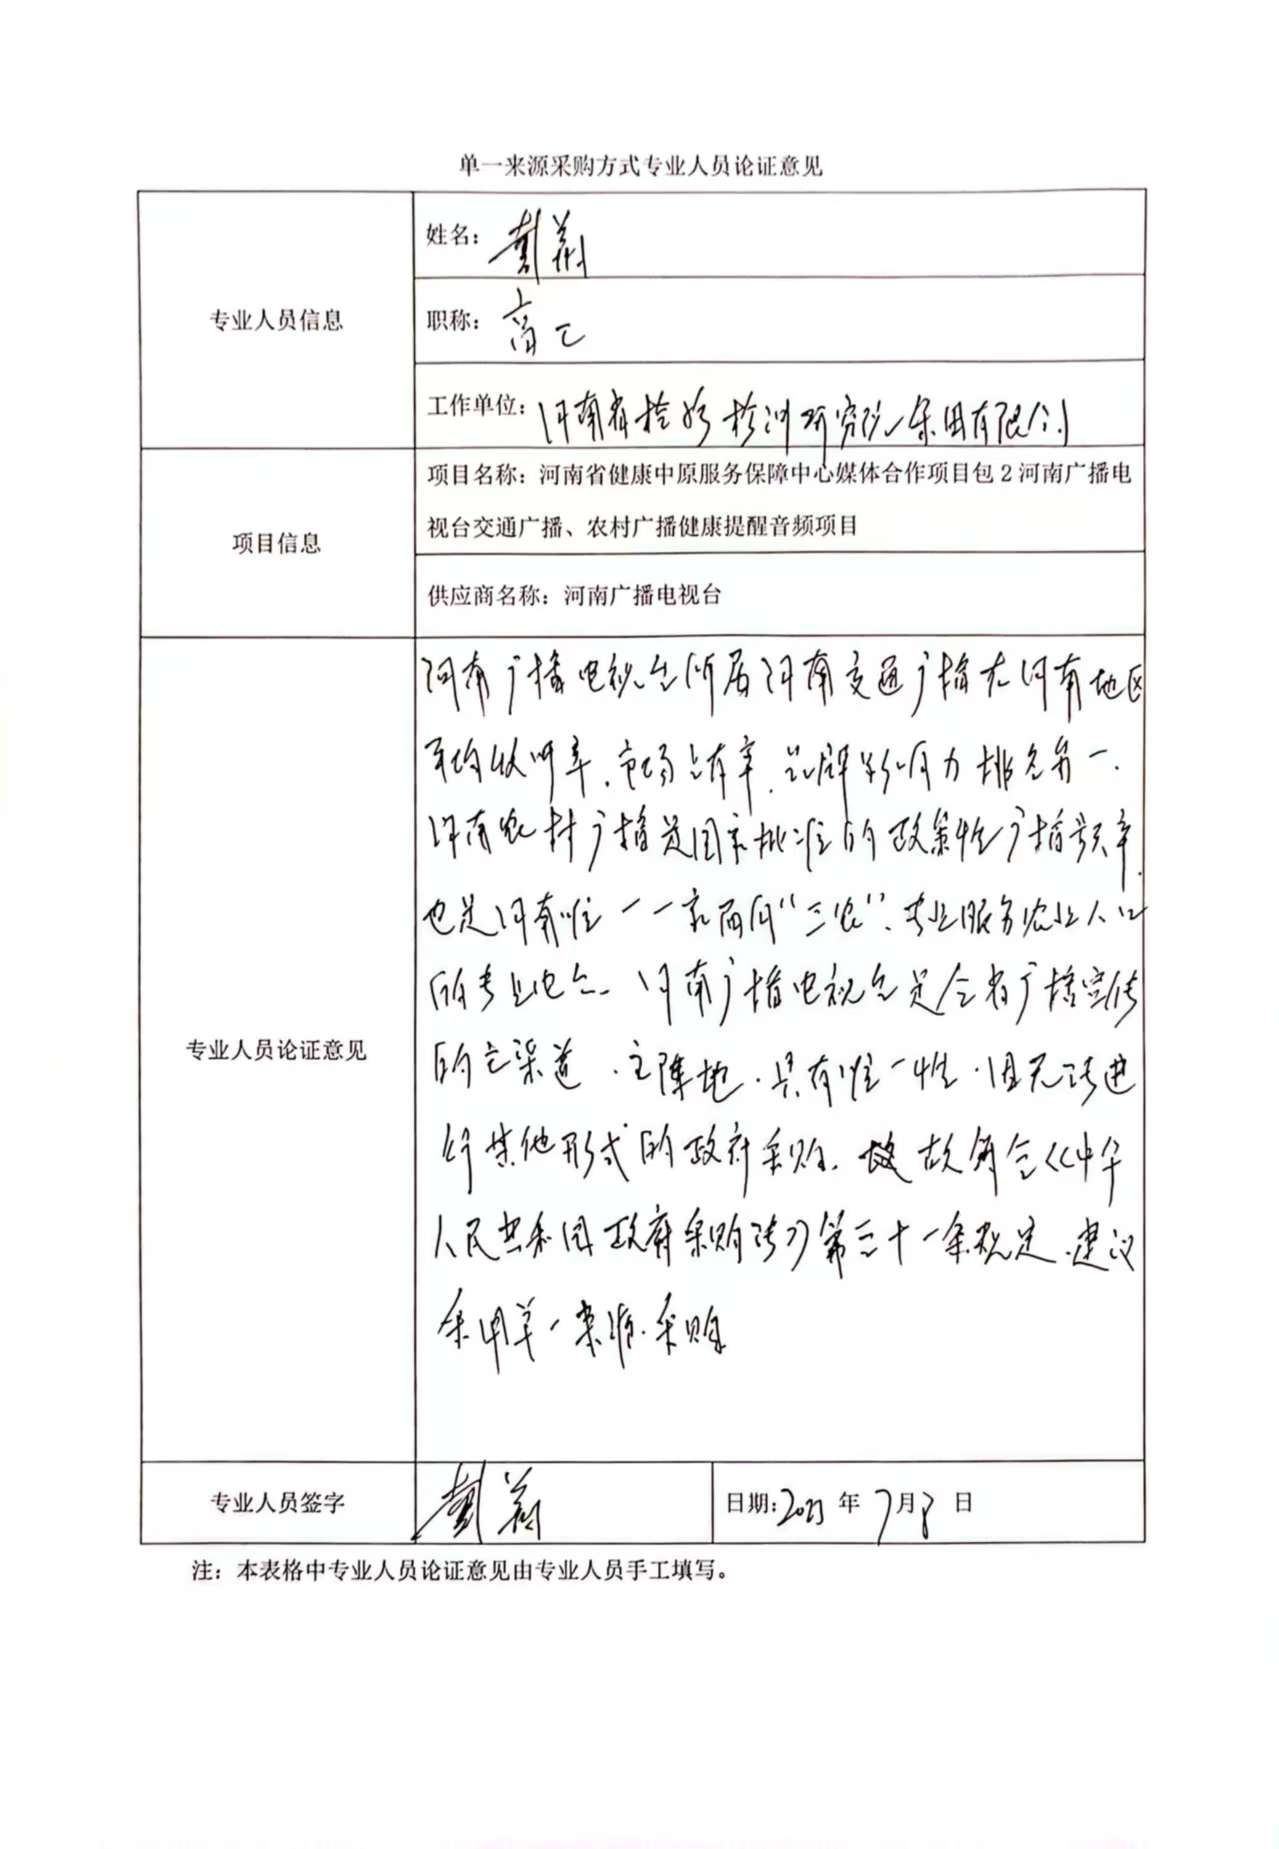 单一来源采购方式专业人员论证意见
专业人员信息
姓名：
职称：高工
工作单位：河南省检验检测研究院集团有限公司
项目信息
项目名称：河南省健康中原服务保障中心媒体合作项目包2河南广播电
视台交通广播、农村广播健康提醒音频项目
供应商名称：河南广播电视台
专业人员论证意见
河南广播电视台所属河南交通广播在河南地区
平均收听率、市场占有率、品牌影响力排名第一.
河南农村广播是国家批准的政策性广播频率,
也是河南唯一一家面向“三农”、专业服务农业人口
的专业电台. 河南广播电视台是全省广播宣传
的主渠道、主阵地.具有唯一性.因无法进
行其他形式的政府采购. 故符合《中华
人民共和国政府采购法》第三十一条规定.建议
采用单一来源采购
专业人员签字
日期: 年7月8日
注：本表格中专业人员论证意见由专业人员手工填写。